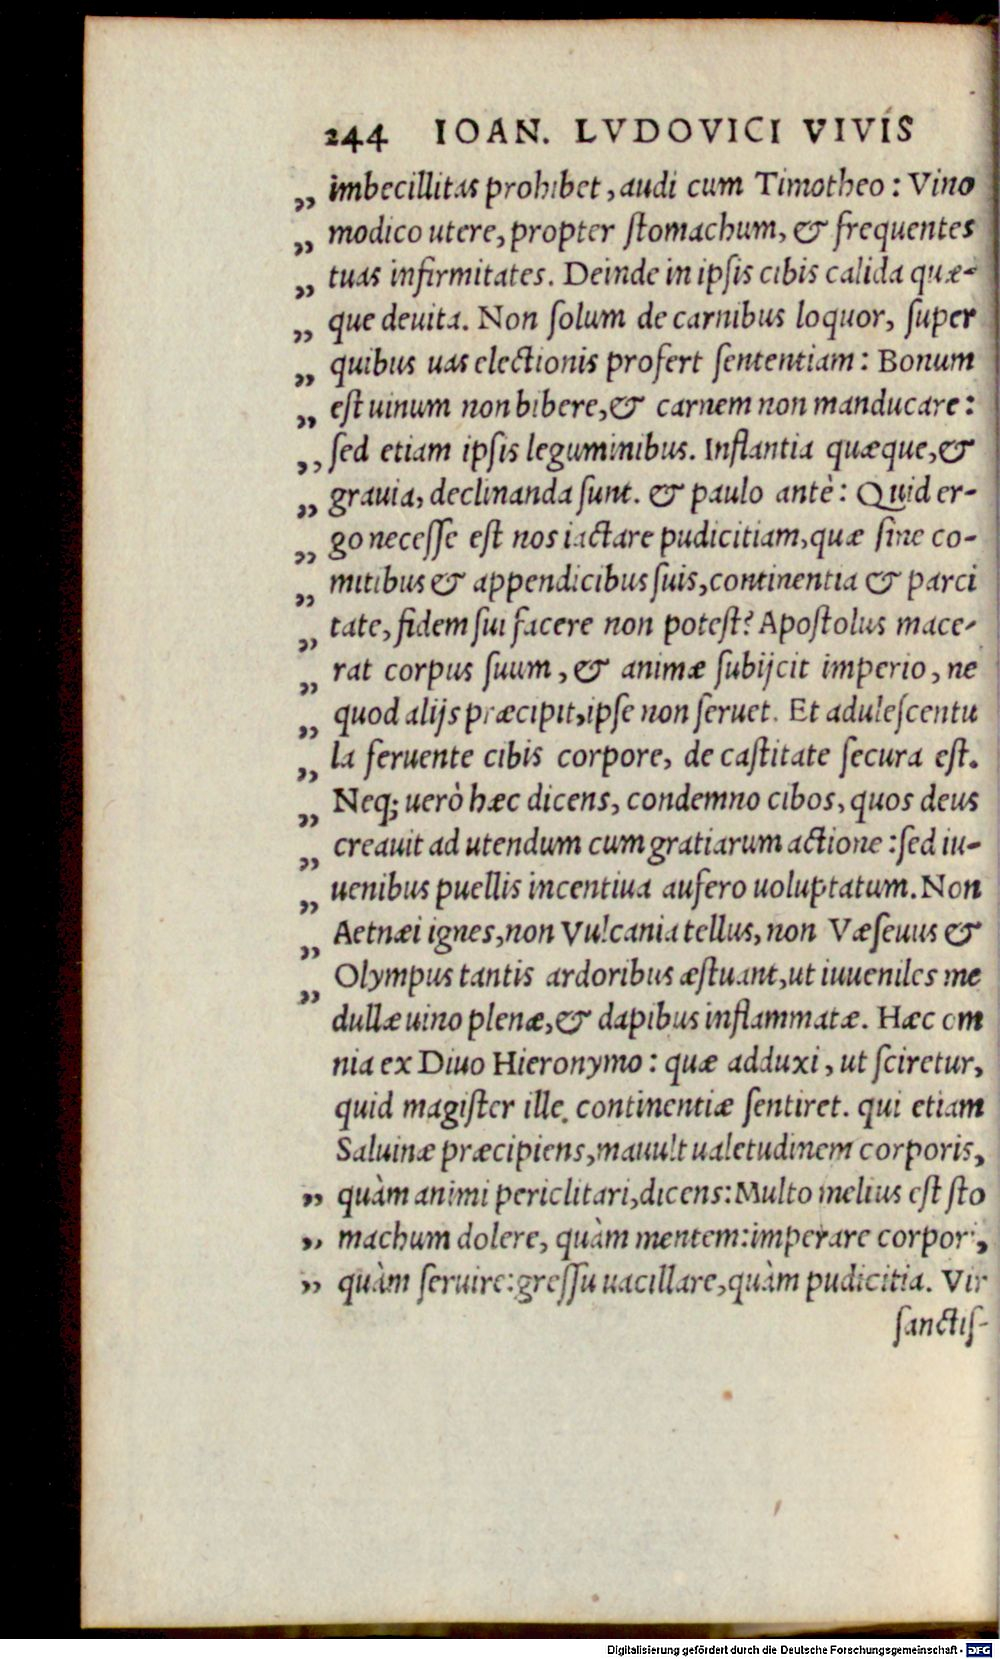 244 IOAN. LVDOVICI VIVIS
„ imbecillitas prohibet, audi cum Timotheo: Vino
„ modico utere, propter ſtomachum, & frequentes
„ tuas infirmitates. Deinde in ipſis cibis calida quæ-
„ que deuita. Non ſolum de carnibus loquor, ſuper
„ quibus uas electionis profert ſententiam: Bonum
„ eſt uinum non bibere, & carnem non manducare:
„ ſed etiam ipſis leguminibus. Inflantia quæque, &
„ grauia, declinanda ſunt. & paulo antè: Quid er-
„ go neceſſe eſt nos iactare pudicitiam, quæ ſine co-
„ mitibus & appendicibus ſuis, continentia & parci
„ tate, fidem ſui facere non poteſt? Apoſtolus mace-
„ rat corpus ſuum, & animæ ſubijcit imperio, ne
„ quod alijs præcipit, ipſe non ſeruet. Et aduleſcentu
„ la feruente cibis corpore, de caſtitate ſecura eſt.
„ Neq; uerò hæc dicens, condemno cibos, quos deus
„ creauit ad utendum cum gratiarum actione: ſed iu-
„ uenibus puellis incentiua aufero uoluptatum. Non
„ Aetnæi ignes, non Vulcania tellus, non Væſeuus &
„ Olympus tantis ardoribus æſtuant, ut iuueniles me
dullæ uino plenæ, & dapibus inflammatæ. Hæc om
nia ex Diuo Hieronymo: quæ adduxi, ut ſciretur,
quid magiſter ille continentiæ ſentiret. qui etiam
Saluinæ præcipiens, mauult ualetudinem corporis,
„ quàm animi periclitari, dicens: Multo melius eſt ſto
„ machum dolere, quàm mentem: imperare corpori,
„ quàm ſeruire: greſſu uacillare, quàm pudicitia. Vir
ſanctiſ-
Digitalisierung gefördert durch die Deutsche Forschungsgemeinschaft - DFG